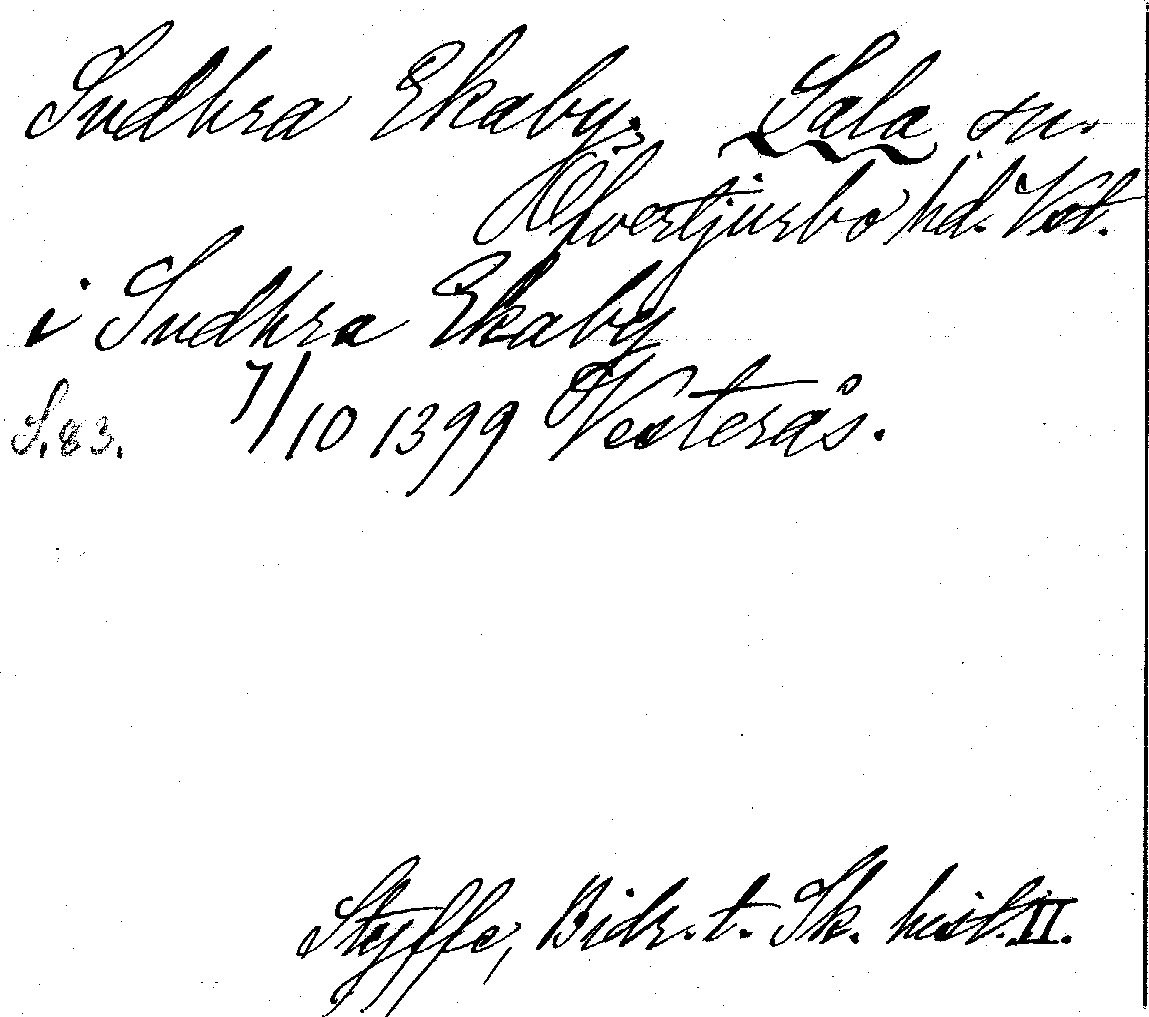 Sudhra Ekaby. Sala sn.
Öfvertjurbo hd. Vst.
i Sudhra Ekaby
S. 83. 7/10 1399 Vesterås.
Styffe, Bidr. t. Sk. hist. II.